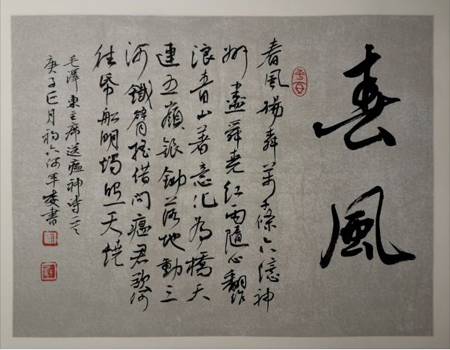 春風
春風楊柳萬千條六億神
州盡舜堯紅雨隨心翻作
浪青山著意化為橋天
連五嶺銀鋤落地動三
河鐵臂搖借問瘟君欲何
往紙船明燭照天燒
毛澤東主席送瘟神詩
庚子巳月初六
書